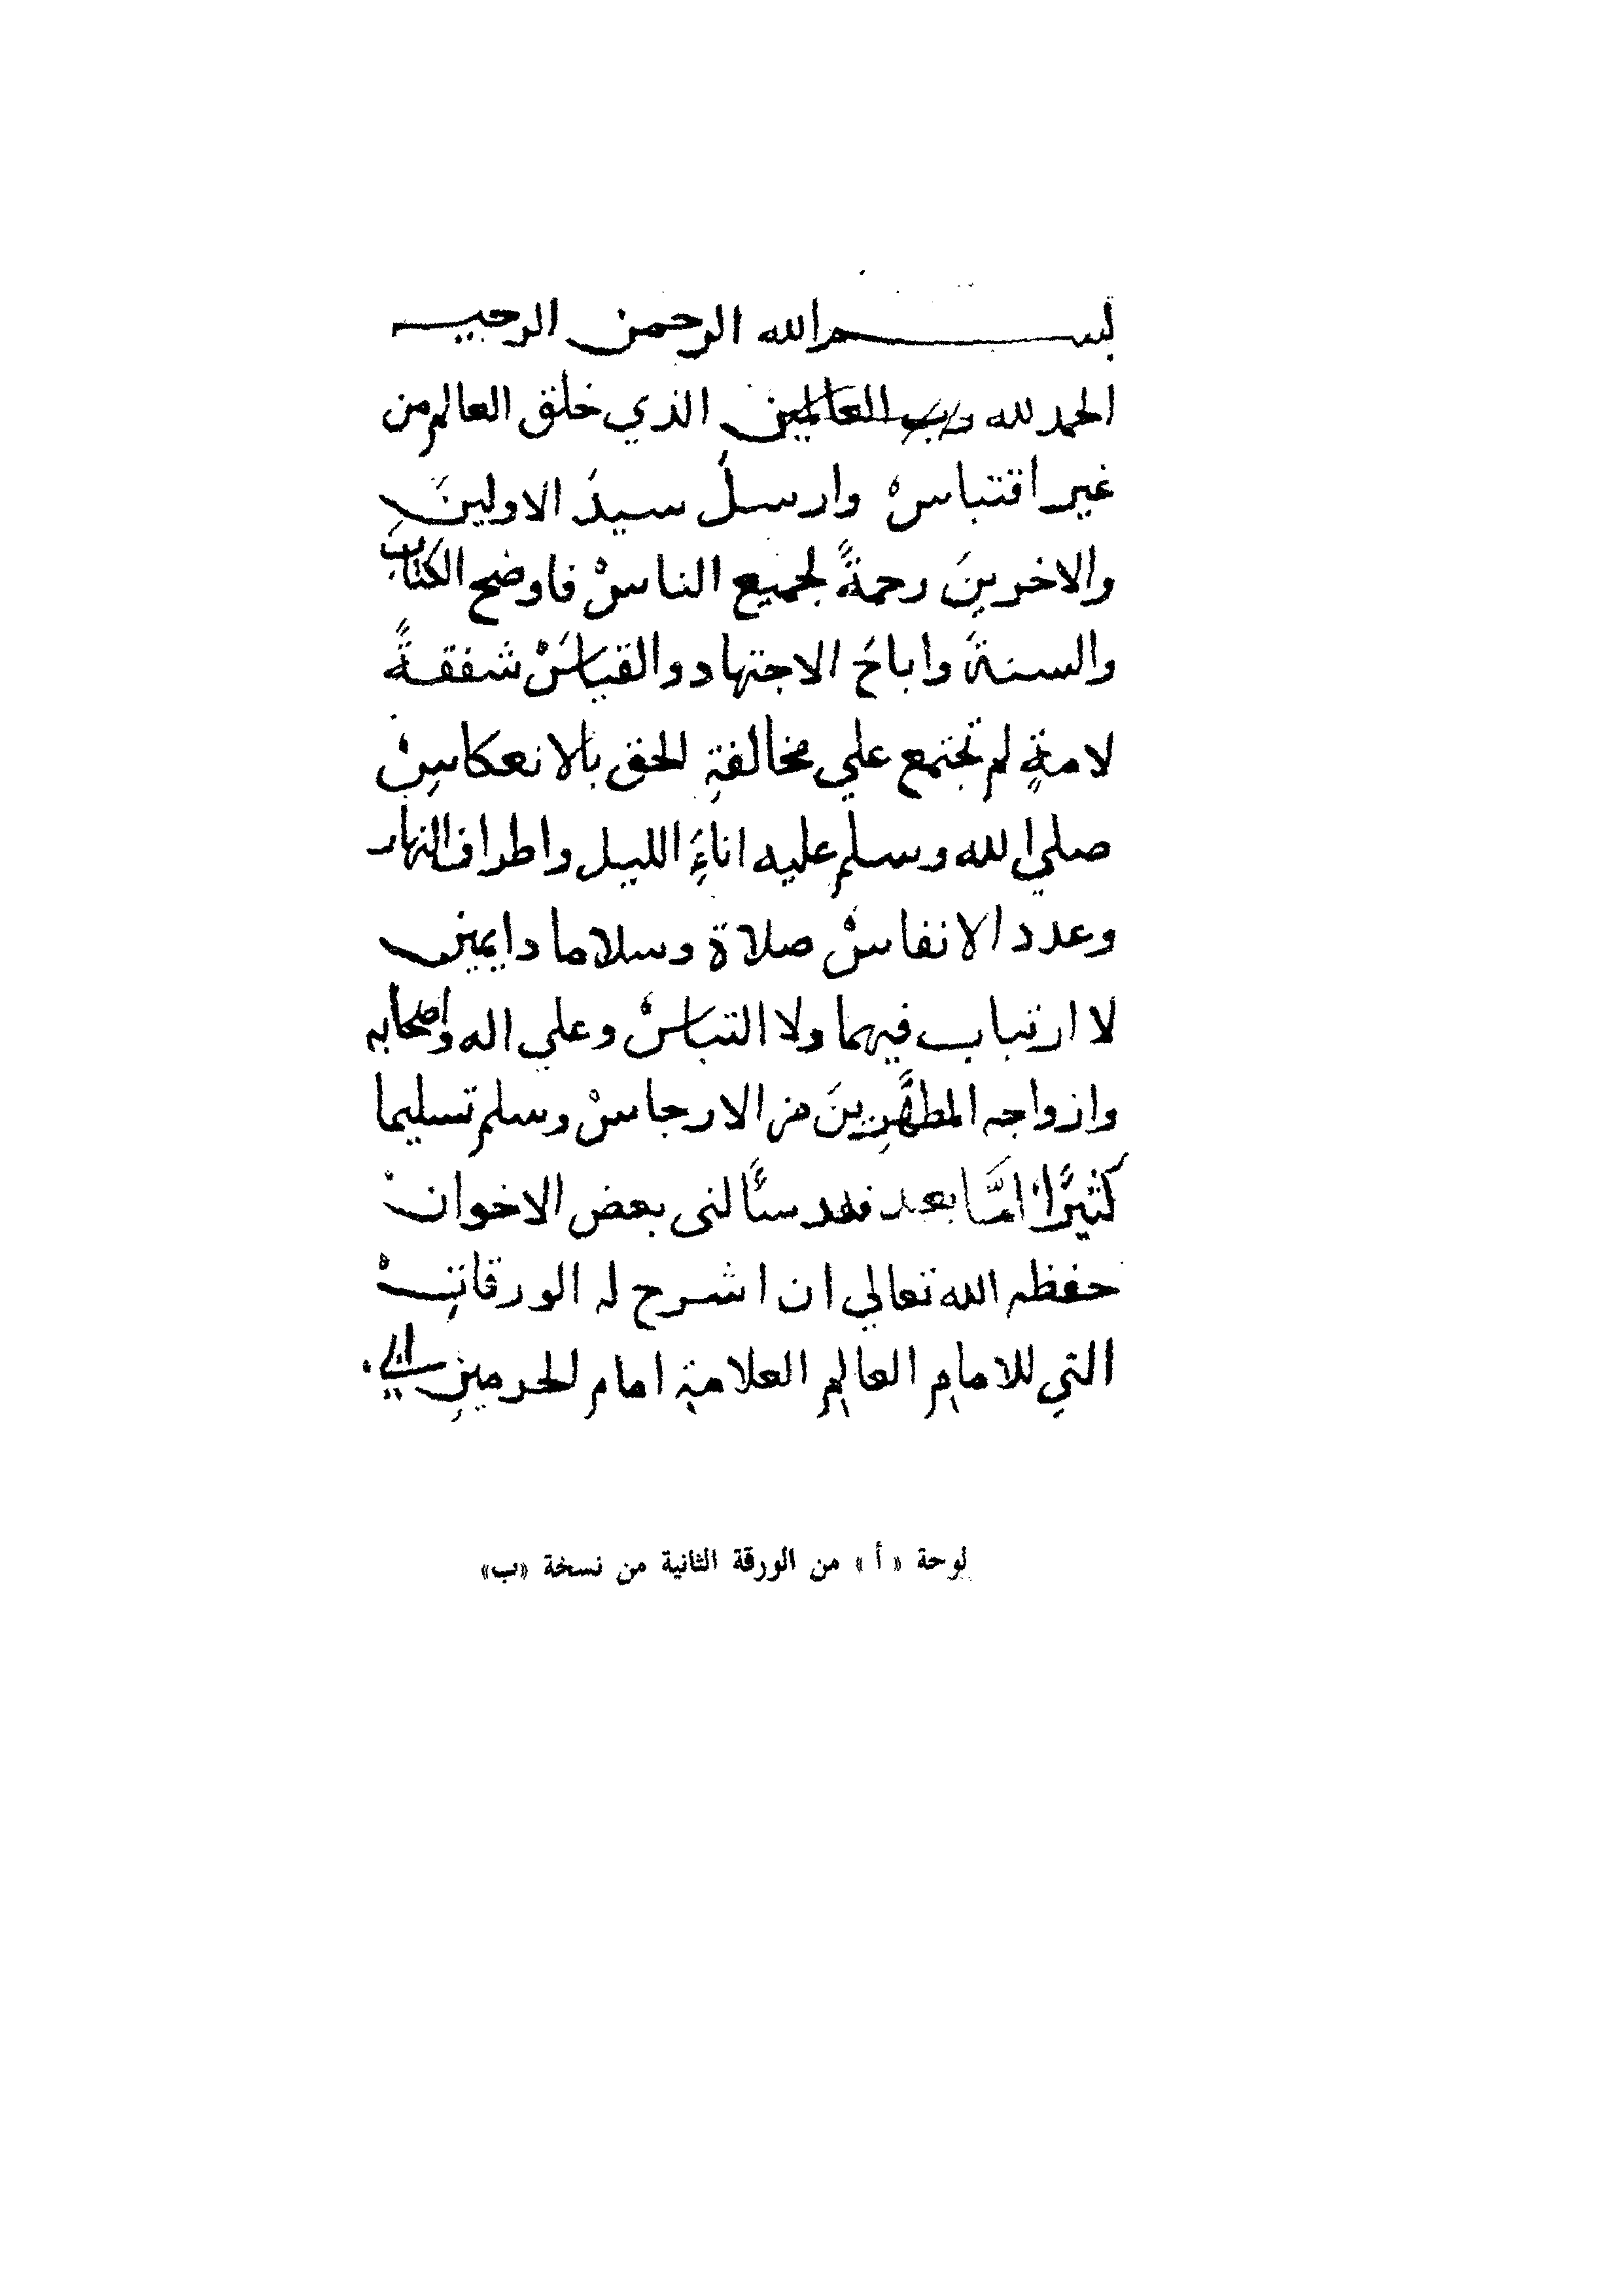 بسم الله الرحمن الرحيم
الحمد لله رب العالمين الذي خلق العالم من
غير اقتباسْ وارسلَ سيدَ الاولينَ
والاخرينَ رحمةً لجميع الناسْ فاوضح الكتابَ
والسنةَ واباحَ الاجتهاد والقياسَْ شفقةً
لامةٍ لم تجتمع علي مخالفةِ الحق بالانعكاسِْ
صلي الله وسلم عليه اناءَِ الليل واطراف النهار
وعدد الانفاسْ صلاة وسلاما دايمين
لا ارتياب فيهما ولا التباسْ وعلي اله واصحابه
وازواجه المطهَّرِينَ من الارجاسْ وسلم تسليما
كثيرًا امَّا بعد فقد سئًالنى بعض الاخوانْ
حفظه الله تعالي ان اشرح له الورقاتِْ
التي للامام العالم العلامة امام الحرمين ابي
لوحة « أ » من الورقة الثانية من نسخة «ب»